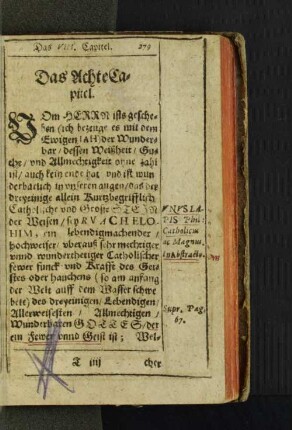 Das VIII. Capitel. 279
Das Achte Ca-
pitel.
VOm HERRN ists gesche-
hen (ich bezeuge es mit dem
Ewigen IAH) der Wunders
bar / dessen Weißheit / Gü-
the / vnd Allmechtigkeit ohne zahl
ist / auch kein ende hat vnd ist wun
derbarlich in vnseren augen / daß der
dreyeinige allein Kurtzbegrifflich
Catholische vnd Große STEIN
der Weisen / sey RVACH ELO-
HIM, ein lebendigmachender /
hochweiser / vberauß sehr mechtiger
vnnd wunderthetiger Catholischer
fewer funck vnd Krafft des Gei-
stes oder hauchens (so am anfang
der Welt auff dem Wasser schwe
bete) des dreyeinigen / Lebendigen /
Allerweisesten / Allmechtigen /
Wunderbaren GOTTES / der
ein Fewer vnnd Geist ist; Wel-
T iiij cher
VNVS LA-
PIS Phil:
Catholicus
ac Magnus,
in
Supr. Pag.
67.